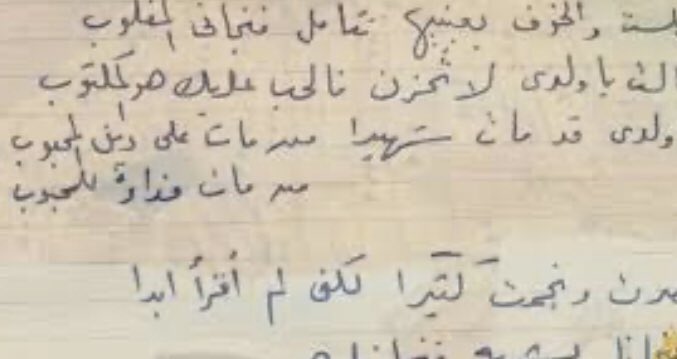 جلست والخوف بعينيها تتامل فنجانى المقلوب
قالت يا ولدى لا تحزن فالحب عليك هو المكتوب
ولدى قد مات شهيدا من مات على دين المحبوب
من مات فداءً للمحبوب
بصرت ونجمت كثيرا لكنى لم أقرأ ابدا